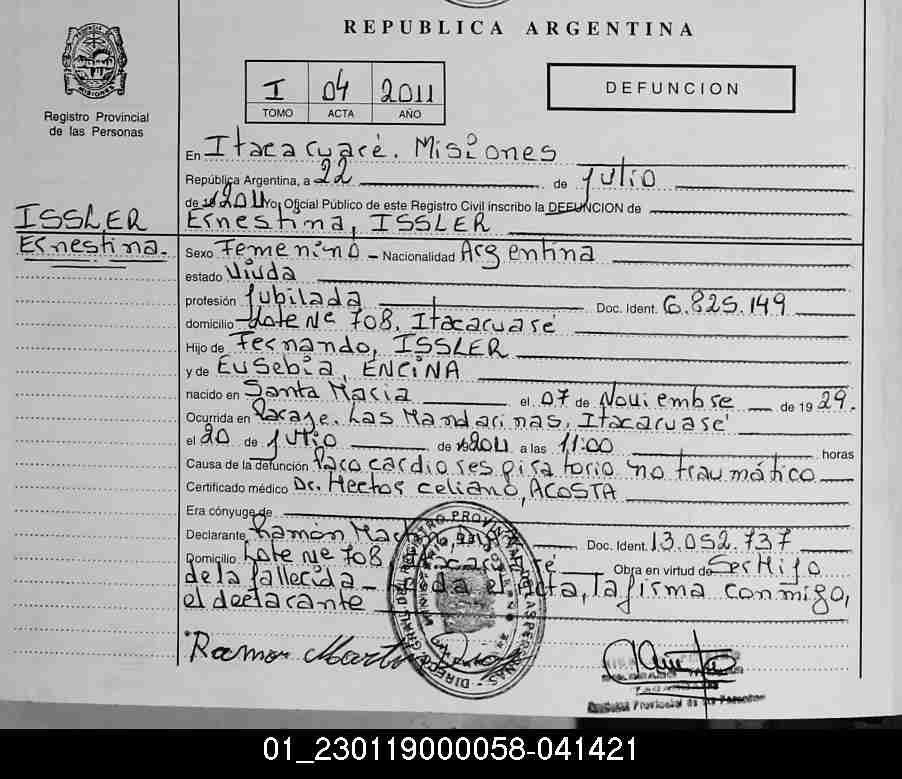 REPUBLICA ARGENTINA
MISIONES
Registro Provincial
de las Personas
I 04 2011
TOMO ACTA AÑO
DEFUNCION
En Itacaruaré. Misiones
República Argentina, a 22 de Julio
de 19 2011 Yo, Oficial Público de este Registro Civil inscribo la DEFUNCION de
ISSLER
Ernestina.
Ernestina, ISSLER
Sexo Femenino - Nacionalidad Argentina
estado Viuda
profesión Jubilada Doc. Ident. 6.825.149
domicilio Lote Nº 708, Itacaruaré
Hijo de Fernando, ISSLER
y de Eusebia, ENCINA
nacido en Santa María el 07 de Noviembre de 19 29.
Ocurrida en Paraje. Las Mandarinas, Itacaruaré
el 20 de Julio de 19 2011 a las 11:00 horas
Causa de la defunción Paro cardiorespiratorio no traumático
Certificado médico Dr. Hector Celiano, ACOSTA
Era cónyuge de
Declarante Ramón Doc. Ident. 13.052.737
Domicilio Lote Nº 708 Obra en virtud de Ser Hijo
de la fallecida - el Acta, la firma conmigo,
el declarante
Ramon
Provincial de las Personas
01_230119000058-041421